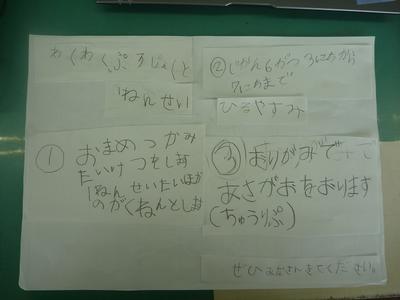 わくわくぷろじぇくと
1ねんせい
①
おまめつかみ
たいけつをします
1ねんせいたいほか
のがくねんとします
②じかん6がつ3にちから
7にちまで
ひるやすみ
③おりがみで
あさがおをおります
(ちゅうりぷ)
ぜひみなさんきてください。